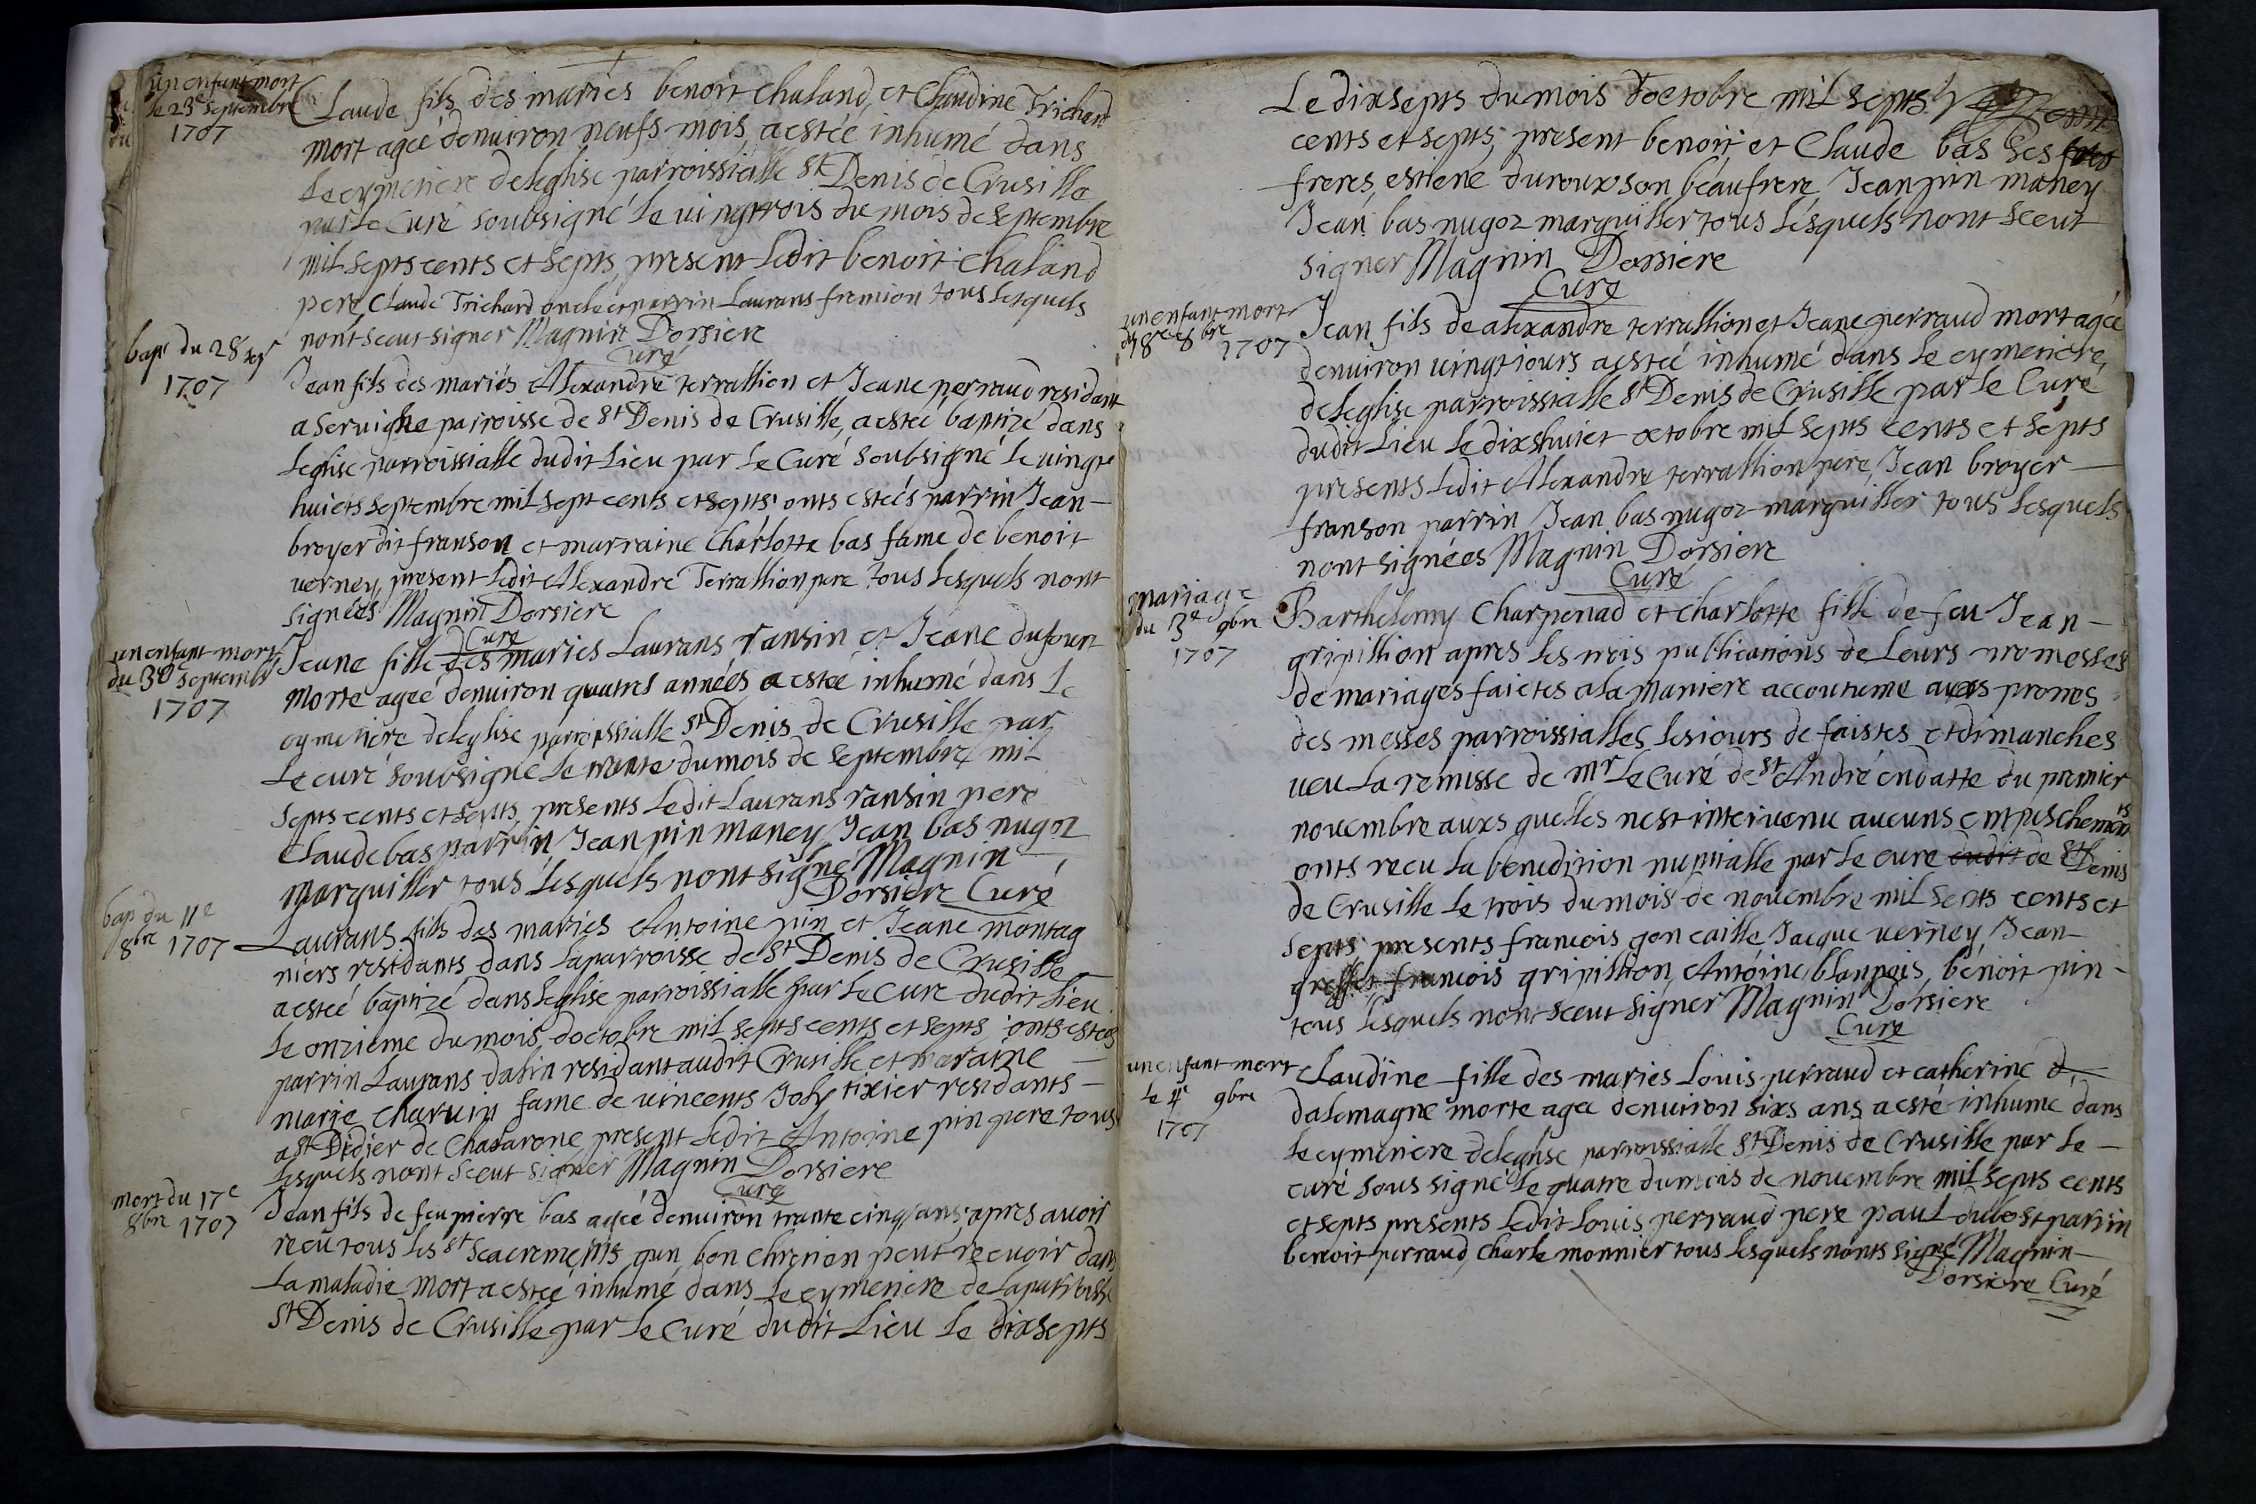 un enfant mort
le 23e septembre
1707
Claude fils des mariés benoit chaland, et Claudine Trichard
mort ageé denuiron neufs mois, a estée inhumé dans
le cymetiere deleglise parroissialle St Denis de Crusille
par le Curé soubsigné le uingtrois du mois de septembre
mil septs cents et septs, present ledit benoit chaland
pere, Claude Trichard oncle et parrin Laurans fremion tous lesquels
nont sceut signer Magnin Dorsiere
Curé
bapt du 28 sepr
1707
Jean fils des mariés Alexandre terrallion et Jeane perraud residant
a Seruigne parroisse de St Denis de Crusille, a estée baptizé dans
leglise parroissialle dudit Lieu par le Curé soubsigné le uingt
huiets septembre mil sept cents et septs onts esteés parrin Jean
broyer dit franson et marraine Charlotte bas fame de benoit
uerney, present ledit Alexandre Terrallion pere tous lesquels nont
signées Magnin Dorsiere
Curé
un enfant mort
du 30e septembr
1707
Jeane fille des mariés Laurans ransin et Jeane dufour
morte ageé denuiron quatres années a estée inhumé dans le
cymetiere deleglise parroissialle St Denis de Crusille par
le curé soubsigné le trante du mois de septembre mil
septs cents et septs, presents ledit Laurans ransin pere
Claude bas parrin Jean pin maney Jean bas nugoz
marguillier tous lesquels nont signé Magnin
Dorsiere Curé
bap du 11e
8bre 1707
Laurans fils des mariés Antoine pin et Jeane montag
niers residants dans laparroisse de St Denis de Crusille
a estée baptizé dans leglise parroissialle par le Curé dudit Lieu
le onzieme du mois doctobre mil septs cents et septs, onts esteés
parrin Laurans dalin residant audit Crusille et maraine
marie charuin fame de uincents Joly tixier residants
a St Didier de Chalarone present ledit Antoine pin pere tous
lesquels nont sceut signer Magnin Dorsiere
Curé
mort du 17e
8bre 1707
Jean fils de feu pierre bas ageé denuiron trante cinq ans apres auoir
recu tous les St Seacrements qun bon chretien peut receuoir dans
la maladie mort a estée inhumé dans le cymetiere de laparroisse
St Denis de Crusille par le Curé dudit Lieu le dixsepts
Le dixsepts du mois doctobre mil septs
cents et septs, present benoit et Claude bas ses
freres, estiene duroux son beaufrere Jean pin maney
Jean bas nugoz marguillier tous lesquels nont sceut
signer Magnin Dorsiere
Curé
un enfant mort
du 18e 8bre
1707
Jean fils de alexandre terrallion et Jeane perraud mort ageé
denuiron uingt iours a estée inhumé dans le cymetiere
deleglise parroissialle St Denis de Crusille par le Curé
dudit Lieu le dixshuiet octobre mil septs cents et septs
presents ledit Alexandre terrallion pere, Jean broyer
franson parrin Jean bas nugoz marguillier tous lesquels
nont signées Magnin Dorsiere
Curé
mariage
du 3e 9bre
1707
Barthelemy Charpenad et Charlotte fille de feu Jean
gripillion apres les trois publications de Leurs promesses
de mariages faictes a la maniere accoutume aux prones
des messes parroissialles les iours de faistes et dimanches
ueu la remisse de mr le Curé de St André en datte du premier
nouembre auxs quelles nest interuenu aucuns empeschements
onts recu la benedition nuptialle par le curé dudit de St Denis
de Crusille le trois du mois de nouembre mil septs cents et
septs presents francois goncaille Jacque uerney, Jean
greffet francois gripillion, Antoine blanpois, benoit pin
tous lesquels nont sceut signer Magnin Dorsiere
Curé
un enfant mort
le 4e 9bre
1707
Claudine fille des mariés Louis perraud et catherine d
dalemagne morte agee denuiron sixs ans a esté inhumé dans
le cymetiere deleglise parroissialle St Denis de Crusille par le
curé sous signé le quatre du mois de nouembre mil septs cents
et septs presents ledit Louis perraud pere paul dubost parrin
benoit perraud, Charle monnier tous lesquels nonts signé Magnin
Dorsiere Curé